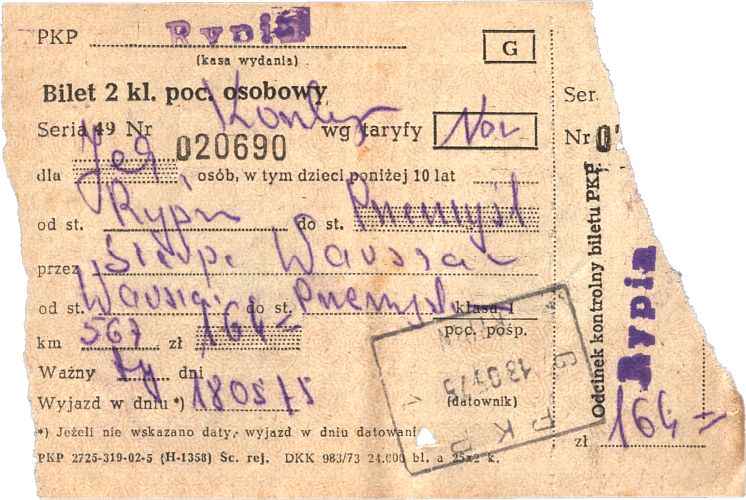 PKP Rypin G
(kasa wydania)
Bilet 2 kl. poc. osobowy Ser.
Seria 49 Nr 020690 wg taryfy Nor Nr 0
dla Jed osób, w tym dzieci poniżej 10 lat
od st. Rypin do st. Przemyśl
przez Sierp. Warszaw
od st. Warsza. do st. Przemyśl klasa 1
poc. pośp.
km 567 zł 164=
Ważny dni
Wyjazd w dniu *) 18 05 75 (datownik)
G PKP 1
*) Jeżeli nie wskazano daty, wyjazd w dniu datowani
PKP 2725-319-02-5 (H-1358) Sc. rej. DKK 983/73 24.000 bl. a 25x2 k.
Odcinek kontrolny biletu PKP
Rypin
zł 164=